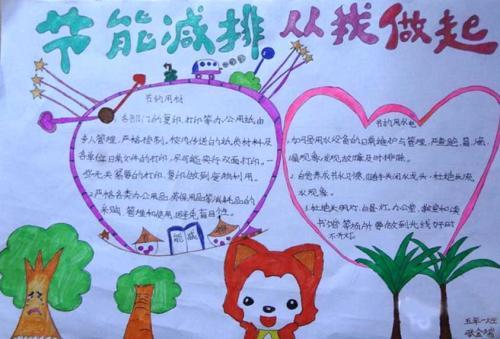 节能减排 从我做起
节约用材
1.各部门的复印、打印等办公用纸由
专人管理,严格控制。校内传送的纸质材料及
各单位日常文件的打印,尽可能实行双面打印。一
些无关紧要的打印、复印做到废纸利用。
2.严格各类办公用品、劳保用品等消耗品的
采购、管理和使用,避免盲目性。
能 减
节约用水电
1.加强用水设备的日常维护与管理,严查跑、冒、滴、
漏现象,发现故障及时排除。
2.自觉养成节水习惯,随手关闭水龙头,杜绝长流
水现象。
3.杜绝长明灯、白昼灯。办公室、教室和读
书馆等场所要做到光线好时
不开灯。
五年一班